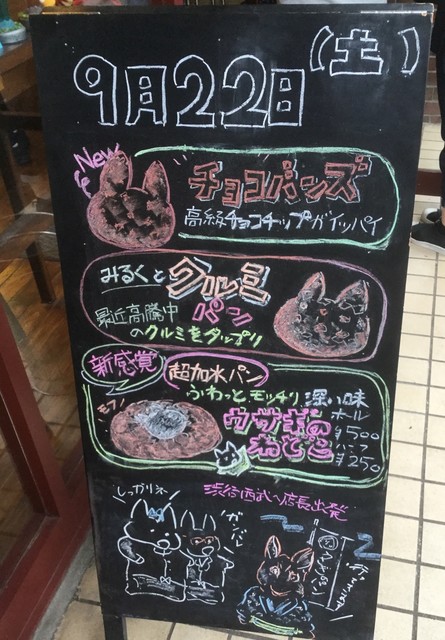 9月22日(土)
New
チョコバンズ
高級チョコチップがイッパイ
みるくと
クルミ
パン
最近高騰中
のクルミをタップリ
新感覚
超加水パン
ふわっとモッチリ 深い味
ウサギの
ねどこ
ホール
¥500
ハーフ
¥250
渋谷西武へ店長出発
しっかりネー
ガンバレ